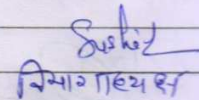 Sushil
विभागाध्यक्ष